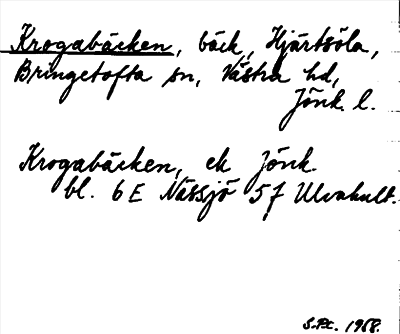 Krogabäcken, bäck, Hjärtsöla,
Bringetofta sn, Västra hd,
Jönk. l.
Krogabäcken, ek Jönk.
bl. 6E Nässjö 5f Ulvahult.
1968.